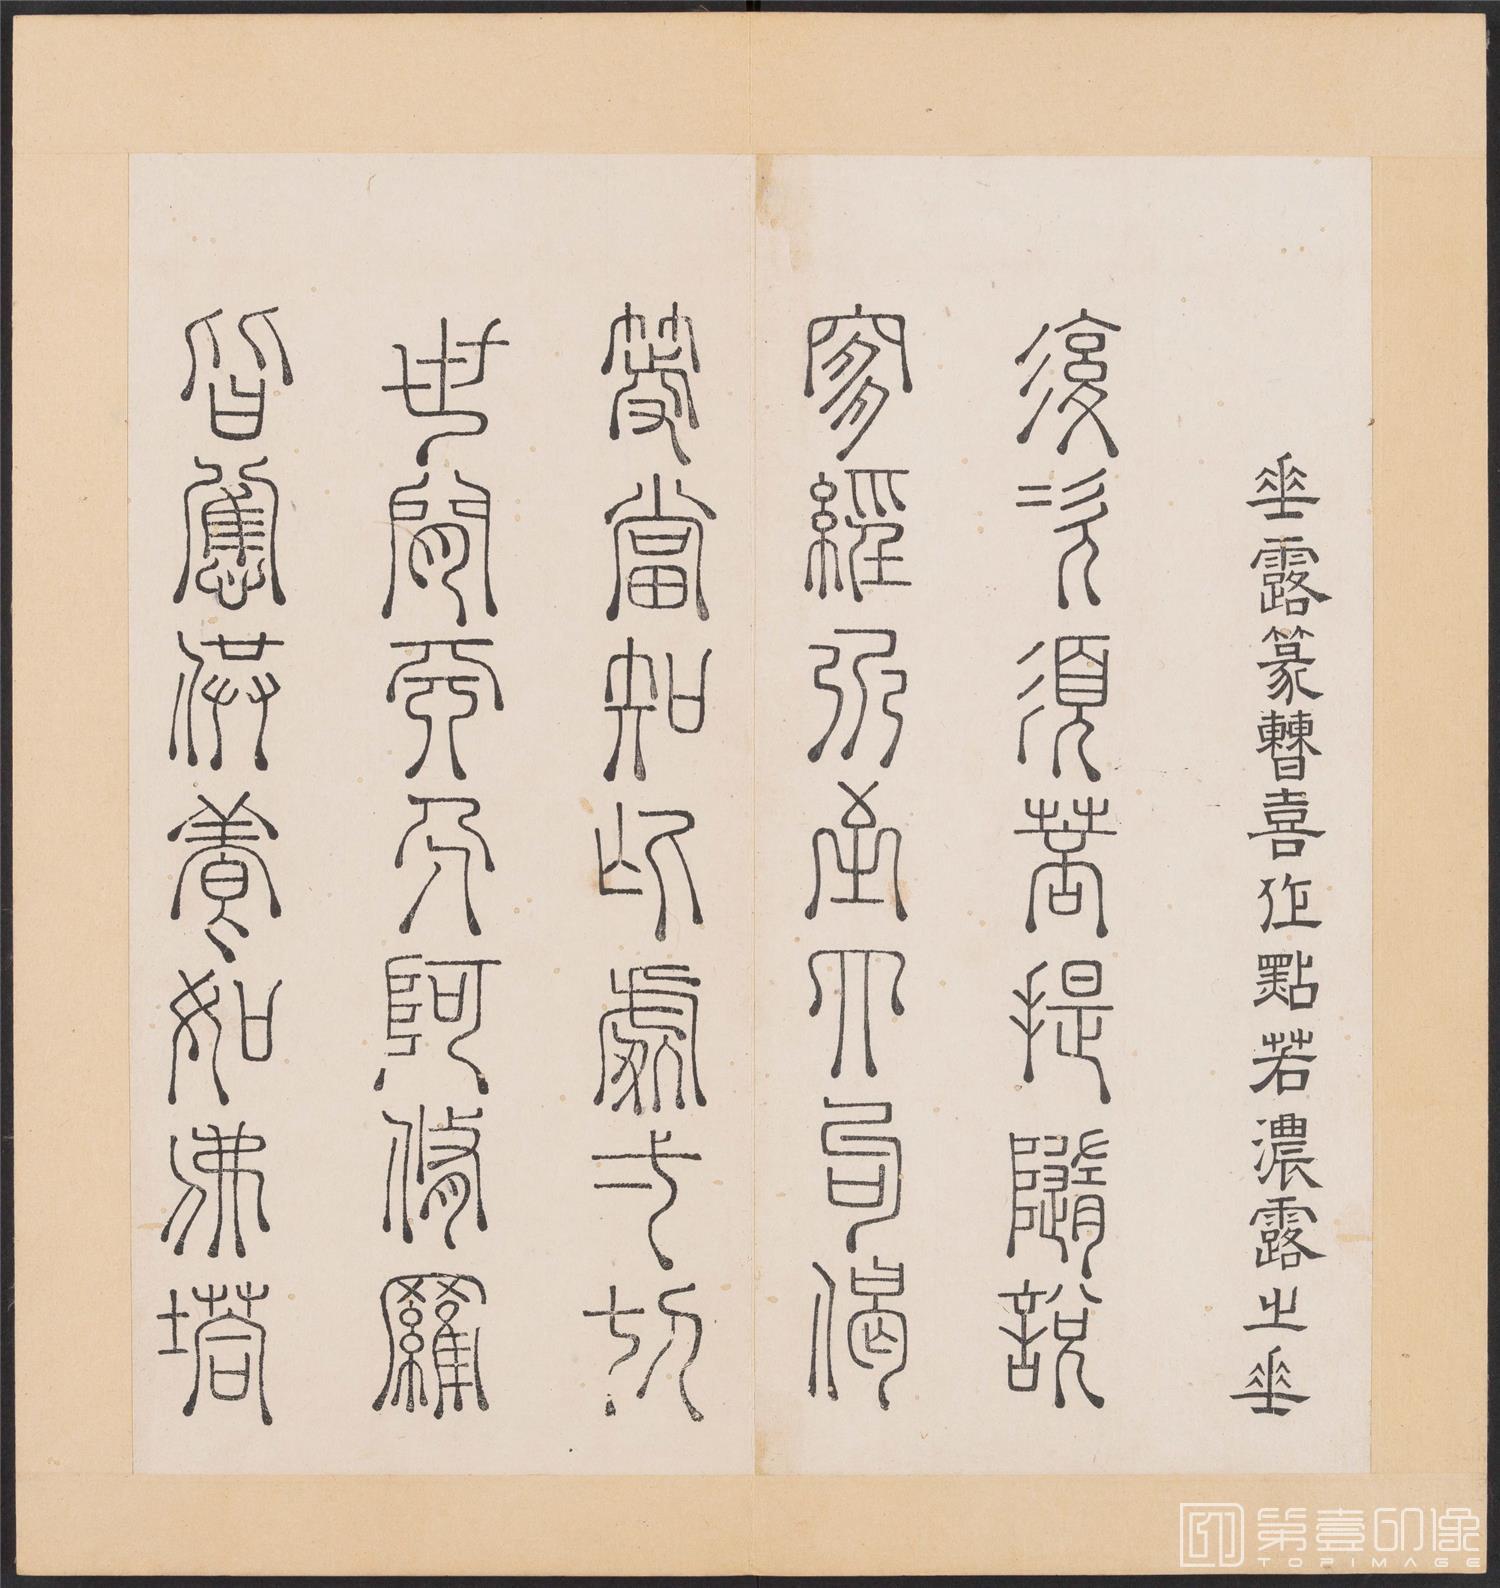 垂露篆曹喜作點若濃露之垂
復次須菩提隨說
是經乃至四句偈
等當知此處一切
世間天人阿修羅
皆應供養如佛塔
第壹印像
TOPIMAGE